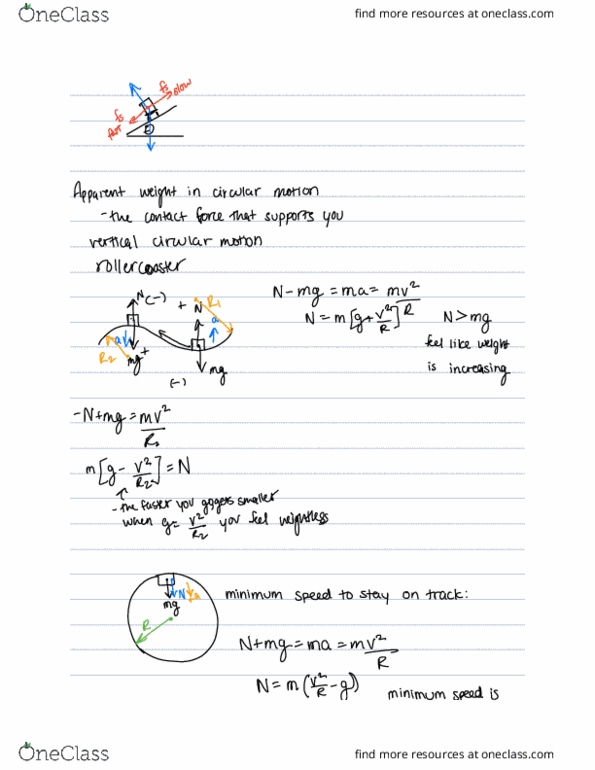 OneClass
find more resources at oneclass.com
fs slow
fs fast
Apparent weight in circular motion
- the contact force that supports you
vertical circular motion
rollercoaster
N (-) + N R₁
a a
R₂ mg + mg
(-)
N - mg = ma = mv²/R
N = m[g + v²/R] N > mg
feel like weight
is increasing
-N + mg = mv²/R₂
m[g - v²/R₂] = N
- the faster you go gets smaller
when g = v²/R₂ you feel weightless
N a
mg
R
minimum speed to stay on track:
N + mg = ma = mv²/R
N = m(v²/R - g) minimum speed is
OneClass
find more resources at oneclass.com